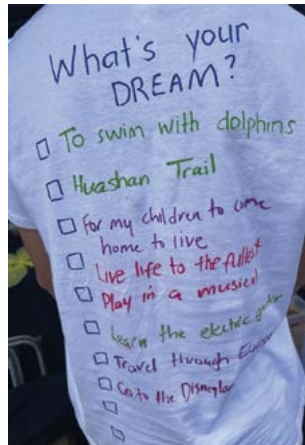 What's your
DREAM?
To swim with dolphins
Huashan Trail
For my children to come
home to live
Live life to the fullest
Play in a musical
Learn the electric
Travel through
Go to the